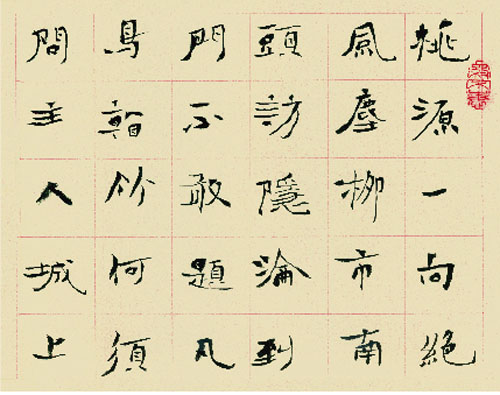 桃源一向絕
風塵柳市南
頭訪隱淪到
門不敢題凡
鳥看竹何須
問主人城上